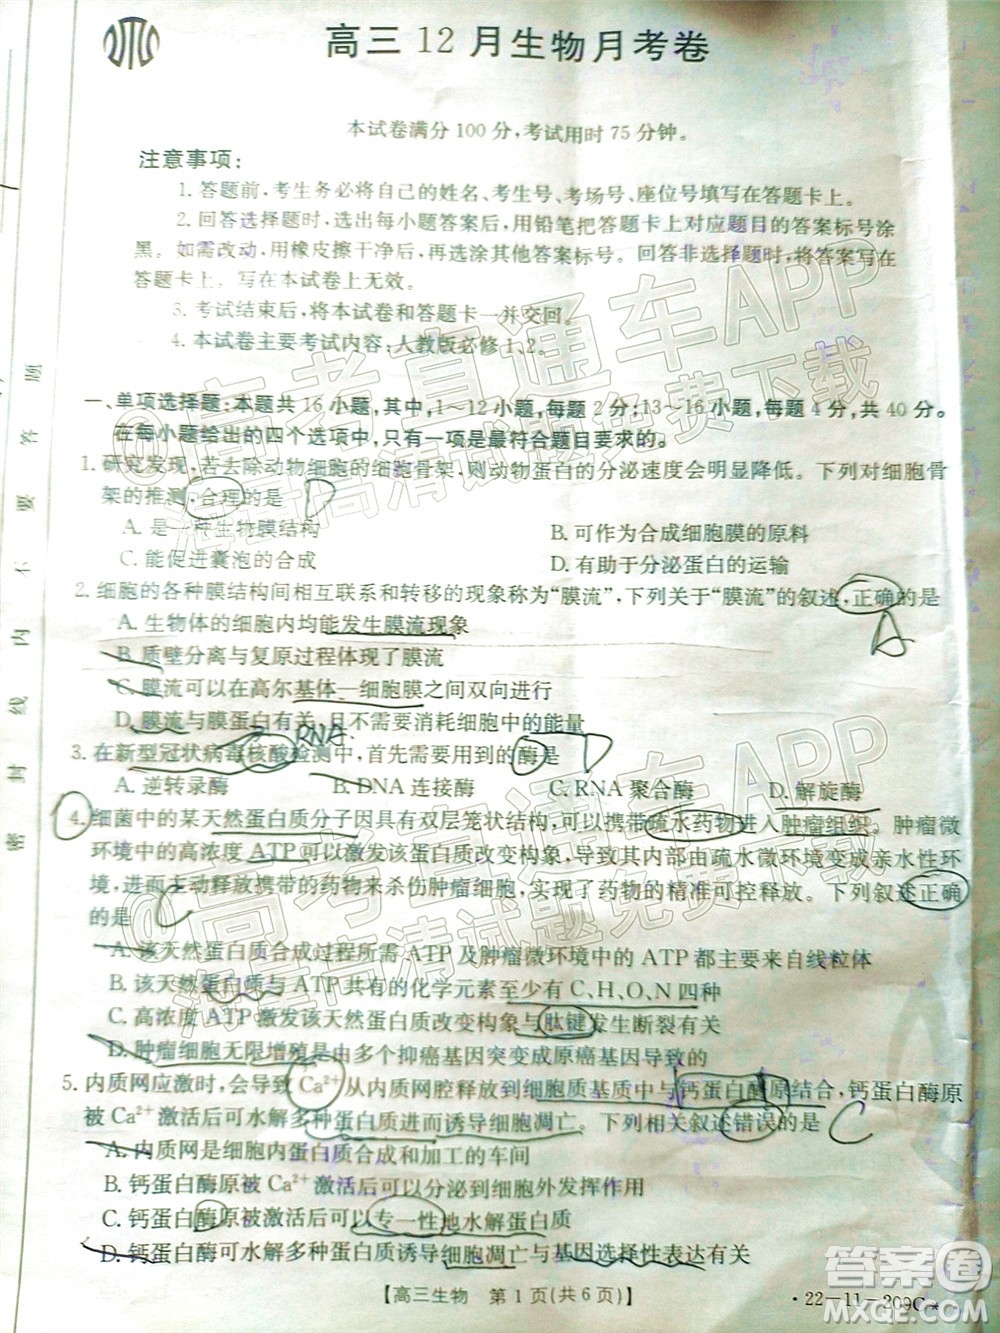 高三12月生物月考卷
本试卷满分100分,考试用时75分钟。
注意事项:
1.答题前,考生务必将自己的姓名、考生号、考场号、座位号填写在答题卡上。
2.回答选择题时,选出每小题答案后,用铅笔把答题卡上对应题目的答案标号涂
黑。如需改动,用橡皮擦干净后,再选涂其他答案标号。回答非选择题时,将答案写在
答题卡上。写在本试卷上无效。
3.考试结束后,将本试卷和答题卡一并交回。
4.本试卷主要考试内容:人教版必修1、2。
一、单项选择题:本题共16小题,其中,1~12小题,每题2分;13~16小题,每题4分,共40分。
在每小题给出的四个选项中,只有一项是最符合题意的。
1.研究发现,若去除动物细胞的细胞骨架,则动物蛋白的分泌速度会明显降低。下列对细胞骨
架的推测,合理的是 D
A.是一种生物膜结构
B.可作为合成细胞膜的原料
C.能促进囊泡的合成
D.有助于分泌蛋白的运输
2.细胞的各种膜结构间相互联系和转移的现象称为“膜流”,下列关于“膜流”的叙述,正确的是
A
A.生物体的细胞内均能发生膜流现象
B.质壁分离与复原过程体现了膜流
C.膜流可以在高尔基体—细胞膜之间双向进行
D.膜流与膜蛋白有关,且不需要消耗细胞中的能量
RNA
3.在新型冠状病毒核酸检测中,首先需要用到的酶是 D
A.逆转录酶 B.DNA连接酶 C.RNA聚合酶 D.解旋酶
4.细菌中的某天然蛋白质分子因具有双层笼状结构,可以携带疏水药物进入肿瘤组织。肿瘤微
环境中的高浓度ATP可以激发该蛋白质改变构象,从而使其内部由疏水微环境变成亲水性环
境,进而主动释放携带的药物来杀伤肿瘤细胞,实现了药物的精准可控释放。下列叙述正确
的是 C
A.该天然蛋白质合成过程所需ATP及肿瘤微环境中的ATP都主要来自线粒体
B.该天然蛋白质与ATP共有的化学元素至少有C、H、O、N四种
C.高浓度ATP激发该天然蛋白质改变构象与肽键发生断裂有关
D.肿瘤细胞无限增殖是由于抑癌基因突变成原癌基因导致的
5.内质网应激时,会导致Ca²⁺从内质网腔释放到细胞质基质中与钙蛋白酶原结合,钙蛋白酶原
被Ca²⁺激活后可水解多种蛋白质进而诱导细胞凋亡。下列相关叙述错误的是 C
A.内质网是细胞内蛋白质合成和加工的车间
B.钙蛋白酶原被Ca²⁺激活后可以通过分泌到细胞外发挥作用
C.钙蛋白酶原被激活后可以专一性地水解蛋白质
D.钙蛋白酶可水解多种蛋白质诱导细胞凋亡与基因选择性表达有关
【高三生物 第1页(共6页)】
·22-11-209C·
密封线内不要答题
@高考直通车APP
海量高清试题免费下载
@高考直通车APP
海量高清试题免费下载
答案圈
MXQE.COM